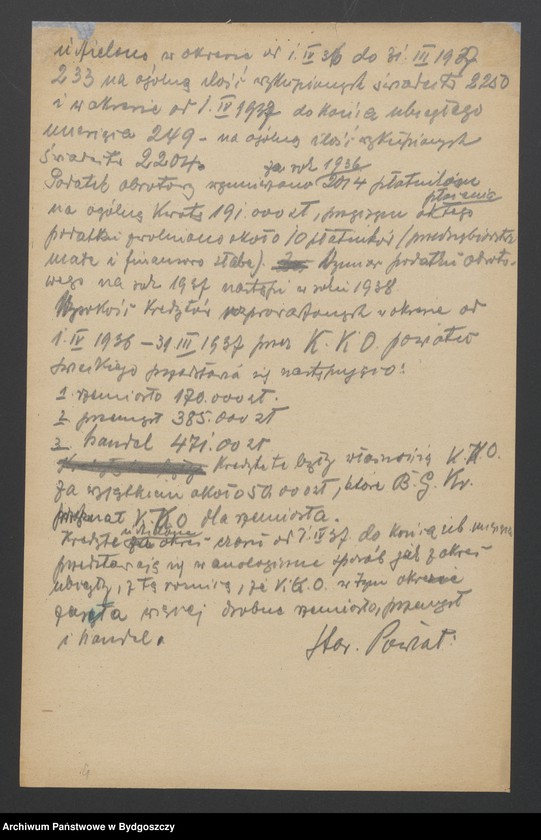 udzielono w okresie od 1.IV 36 do 31.III 1937
233 na ogólną ilość wykupionych świadectw 2250
i w okresie od 1.IV 1937 do końca ubiegłego
miesiąca 249 - na ogólną ilość wykupionych
świadectw 2204.
za rok 1936
Podatek obrotowy wymierzono 2014 płatników
na ogólną kwotę 191.000 zł, przyczym od tego
płacenia
podatku zwolniono około 10 płatników (przedsiębiorstwa
małe i finansowo słabe). Wymiar podatku obroto-
wego na rok 1937 nastąpi w roku 1938.
Wysokość kredytów rozprowadzonych w okresie od
1.IV 1936 - 31 III 1937 przez K.K.O. powiatu
świeckiego przedstawia się następująco:
1. rzemiosło 170.000 zł.
2. przemysł 385.000 zł
3. handel 471.00 zł
Kredyty te były własnością K.K.O.
za wyjątkiem około 50.000 zł, które B.G.Kr.
K.K.O dla rzemiosła.
udzielone
Kredyty za okres czasu od 1.IV 37 do końca ub miesiąca
przedstawiają się w analogiczny sposób jak za okres
ubiegły, z tą różnicą, że K.K.O. w tym okresie
więcej drobne rzemiosło, przemysł
i handel.
Star. Powiat.
Archiwum Państwowe w Bydgoszczy